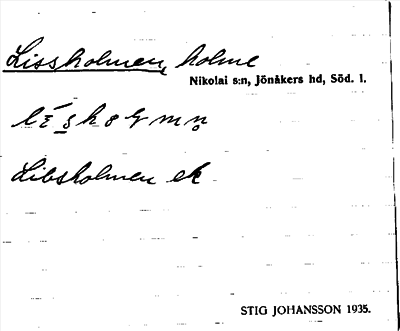 Lissholmen, holme
Nikolai s:n, Jönåkers hd, Söd. l.
Libsholmen ek
STIG JOHANSSON 1935.